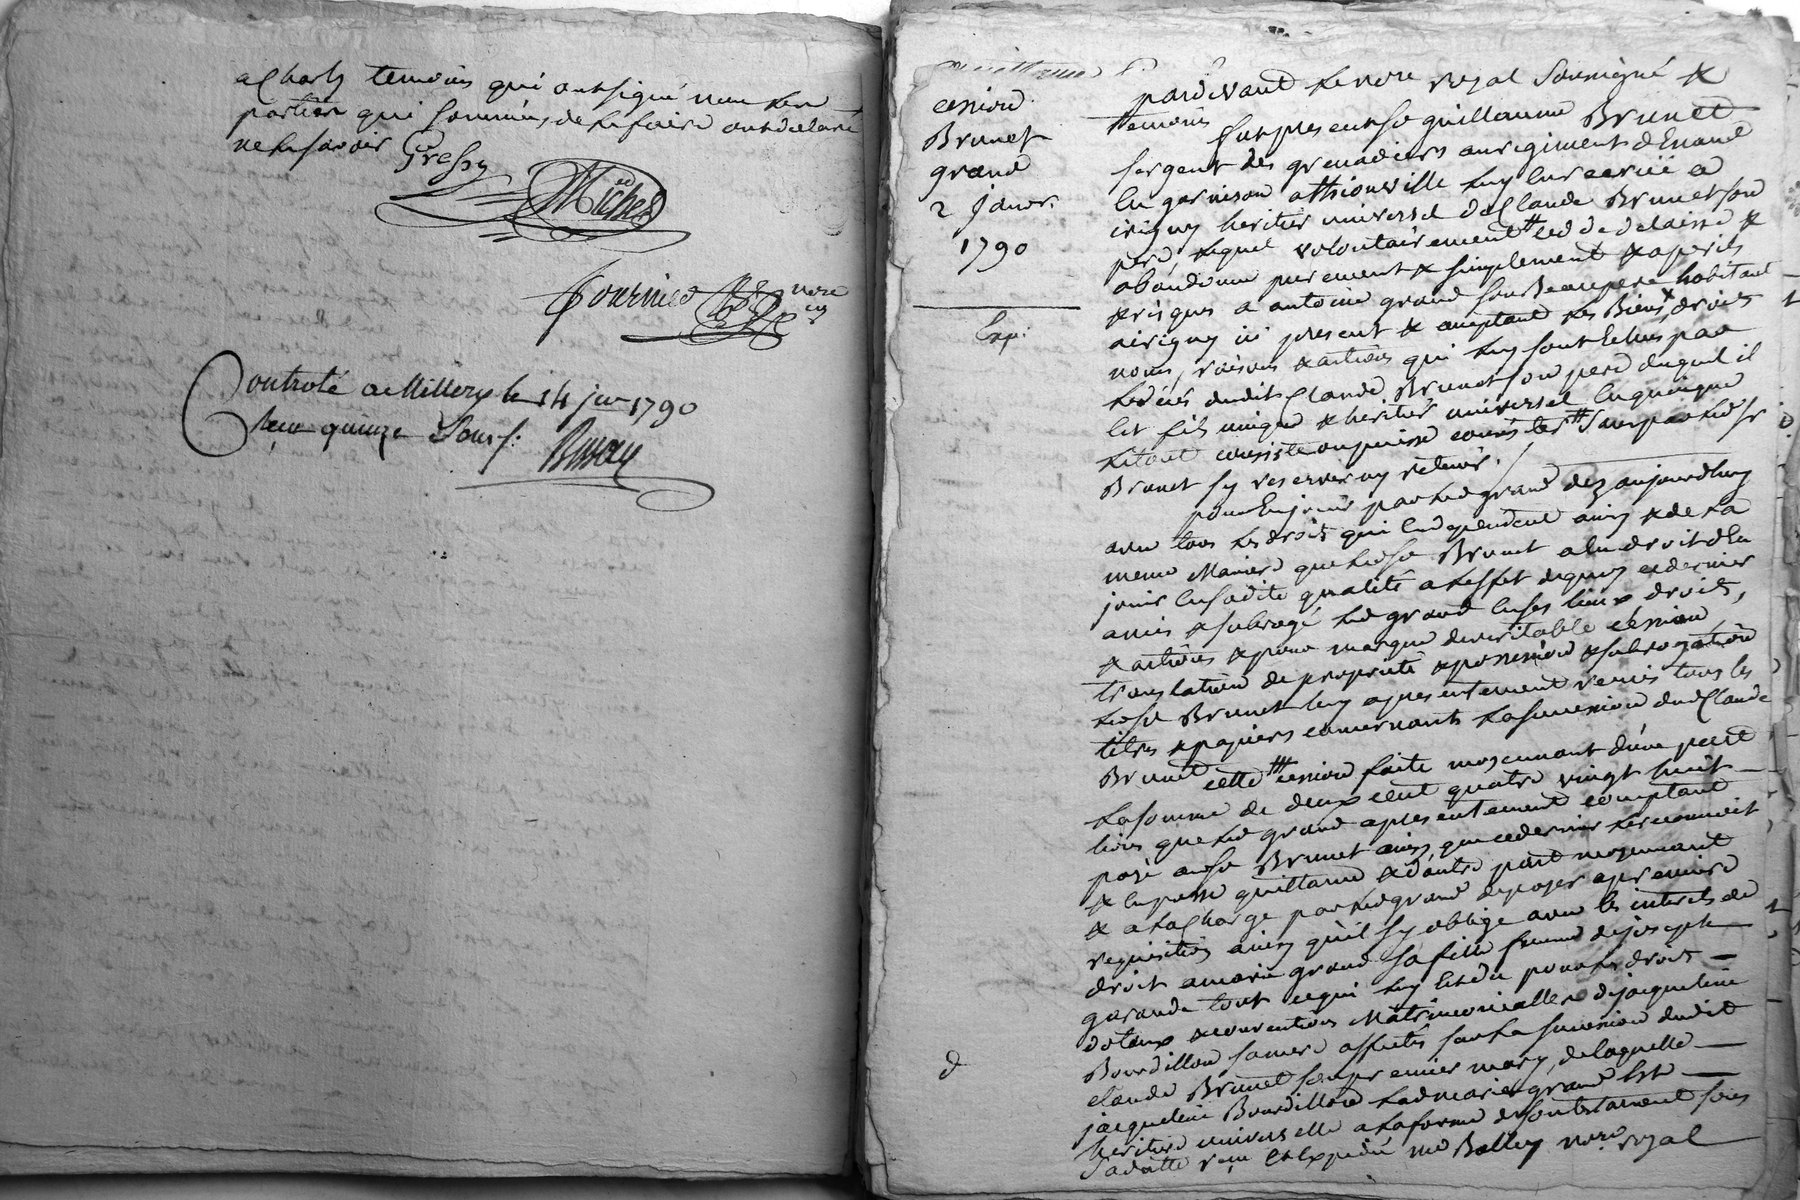 a Charly temoins qui ont signé non les
parties qui sommées de le faire ont declaré
ne le savoir Gressy
Michel
fournier nore
Controlé a Millery le 14 jer 1790
Reçu quinze sous
cession
Brunet
grand
2 janvr.
1790
Exp.
pardevant le nore royal soussigné &
temoins
fut present sr guillaume Brunet
sergent des grenadiers au regiment
en garnison a thionville
irigny heritier universel de Claude Brunet son
pere lequel volontairement cede delaisse &
abandonne purement & simplement & a perils
& risques a antoine grand son Beaupere habitant
airigny ici present & acceptant les Biens, droits
noms, raisons & actions qui luy sont echus par
le déces dudit Claude Brunet son pere duquel il
est fils unique & heritier universel en quoy que
le tout consiste ou puisse consister sans par led sr
Brunet sy reserver ny retenir.
pour en jouir par led grand dez aujourdhuy
avec tous les droits qui en dependent ainsy & de la
meme Maniere que led sr Brunet a eu droit d'en
jouir en sadite qualité a l'effet de quoy ce dernier
a mis & subrogé led grand en ses lieux droits,
& actions & pour marque de veritable cession,
translation de proprieté & possession & subrogation
led sr Brunet luy a presentement remis tous les
titres & papiers concernants la succession dud Claude
Brunet
cette cession faite moyennant d'une part
la somme de deux cent quatre vingt huit
livres que led grand a presentement comptant
payé aud sr Brunet ainsy que ce dernier le reconnoit
& en passe quittance & d'autre part moyennant
& a la charge par led grand de payer a premiere
requisition ainsy qu'il sy oblige avec les interets de
droit a marie grand sa fille femme de joseph
garande tout ce qui luy est du pour les droits
dotaux & conventions Matrimonialles de jacqueline
Bourdillon sa mere affectés sur la succession dudit
claude Brunet son premier mary, de laquelle
jacqueline Bourdillon lad marie grand est
heritiere universelle a la forme de son testament sous
sa datte reçu & expedié me Balley nore royal
d